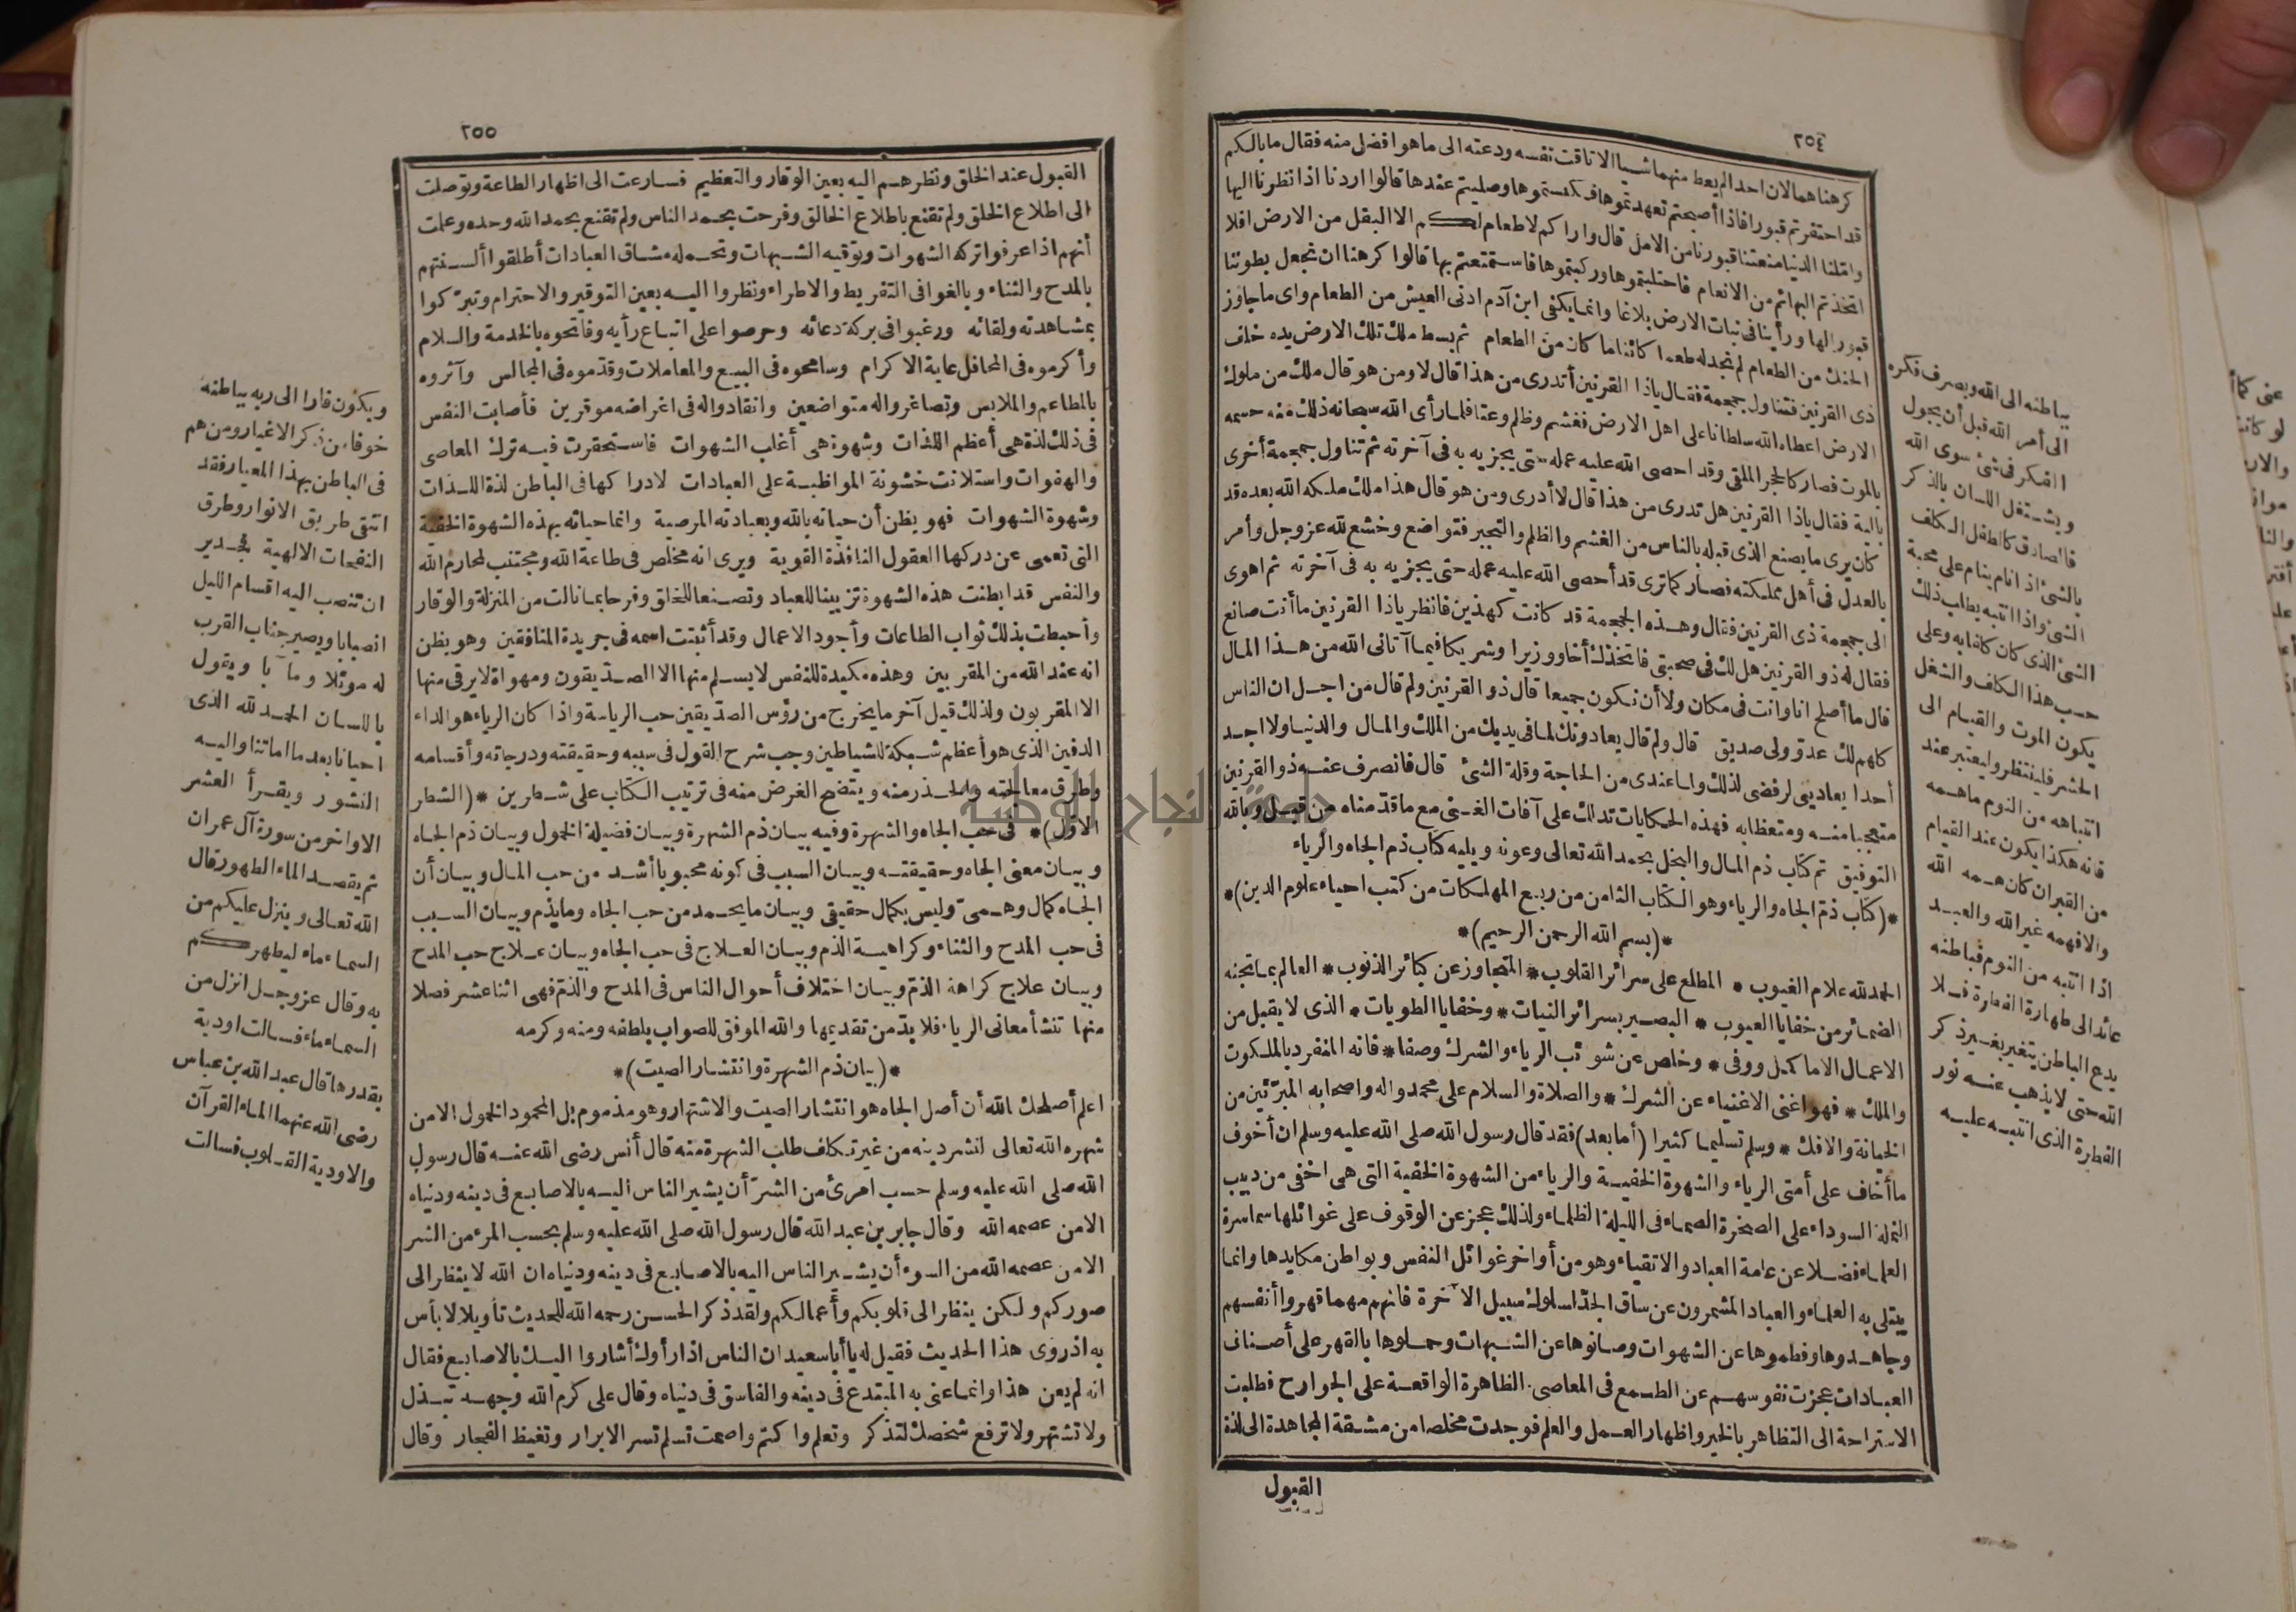 ٢٥٤
كرهناهما لان احدا لم يعط منهما شيأ الا تاقت نفسه ودعته الى ما هو افضل منه فقال ما بالكم
قد احتفرتم قبورا فاذا أصبحتم تعهدتموها فكنستموها وصليتم عندها قالوا اردنا اذا نظرنا اليها
وامّلنا الدنيا منعتنا قبورنا من الامل قال واراكم لا طعام لكم الا البقل من الارض افلا
اتخذتم البهائم من الانعام فاحتلبتموها وركبتموها فاستمتعتم بها قالوا كرهنا ان نجعل بطوننا
قبورا لها ورأينا فى نبات الارض بلاغا وانما يكفى ابن آدم ادنى العيش من الطعام واى ما جاوز
الحنك من الطعام لم نجد له طعما كائنا ما كان من الطعام ثم بسط ملك تلك الارض يده خلف
ذى القرنين فتناول جمجمة فقال ياذا القرنين أتدرى من هذا قال لا ومن هو قال ملك من ملوك
الارض اعطاه الله سلطانا على اهل الارض فغشم وظلم وعتا فلما رأى الله سبحانه ذلك منه حسمه
بالموت فصار كالحجر الملقى وقد احصى الله عليه عمله حتى يجزيه به فى آخرته ثم تناول جمجمة أخرى
بالية فقال ياذا القرنين هل تدرى من هذا قال لا أدرى ومن هو قال هذا ملك ملكه الله بعده قد
كان يرى ما يصنع الذى قبله بالناس من الغشم والظلم والتجبر فتواضع وخشع لله عز وجل وأمر
بالعدل فى أهل مملكته فصار كما ترى قد أحصى الله عليه عمله حتى يجزيه به فى آخرته ثم اهوى
الى جمجمة ذى القرنين فقال وهذه الجمجمة قد كانت كهذين فانظر ياذا القرنين ما أنت صانع
فقال له ذو القرنين هل لك فى صحبتى فاتخذك أخا ووزيرا وشريكا فيما آتانى الله من هذا المال
قال ما أصلح انا وانت فى مكان ولا أن نكون جميعا قال ذو القرنين ولم قال من اجل ان الناس
كلهم لك عدو ولى صديق قال ولم قال يعادونك لما فى يديك من الملك والمال والدنيا ولا اجد
أحدا يعادينى لرفضى لذلك ولما عندى من الحاجة وقلة الشئ قال فانصرف عنه ذو القرنين
متعجبا منه ومتعظا به فهذه الحكايات تدلك على آفات الغنى مع ما قدمناه من قبل وبالله
التوفيق تم كتاب ذم المال والبخل بحمد الله تعالى وعونه ويليه كتاب ذم الجاه والرياء
*(كتاب ذم الجاه والرياء وهو الكتاب الثامن من ربع المهلكات من كتب احياء علوم الدين)*
*(بسم الله الرحمن الرحيم)*
الحمد لله علام الغيوب * المطلع على سرائر القلوب * المتجاوز عن كبائر الذنوب * العالم بما تجنه
الضمائر من خفايا العيوب * البصير بسرائر النيات * وخفايا الطويات * الذى لا يقبل من
الاعمال الا ما كمل ووفى * وخلص عن شوائب الرياء والشرك وصفا * فانه المنفرد بالملكوت
والملك * فهو اغنى الاغنياء عن الشرك * والصلاة والسلام على محمد واله واصحابه المبرّئين من
الخيانة والافك * وسلم تسليما كثيرا (أما بعد) فقد قال رسول الله صلى الله عليه وسلم ان أخوف
ما أخاف على أمتى الرياء والشهوة الخفية والرياء من الشهوة الخفية التى هى اخفى من دبيب
النملة السوداء على الصخرة الصماء فى الليلة الظلماء ولذلك عجز عن الوقوف على غوائلها سماسرة
العلماء فضلا عن عامة العباد والاتقياء وهو من أواخر غوائل النفس وبواطن مكايدها وانما
يبتلى به العلماء والعباد المشمرون عن ساق الجدّ لسلوك سبيل الآخرة فانهم مهما قهروا أنفسهم
وجاهدوها وفطموها عن الشهوات وصانوها عن الشبهات وحملوها بالقهر على أصناف
العبادات عجزت نفوسهم عن الطمع فى المعاصى الظاهرة الواقعة على الجوارح فطلبت
الاستراحة الى التظاهر بالخير واظهار العمل والعلم فوجدت مخلصا من مشقة المجاهدة الى لذة
القبول
بباطنه الى الله ويصرف فكره
الى أمر الله قبل أن يجول
الفكر فى شئ سوى الله
ويشتغل اللسان بالذكر
فالصادق كالطفل الكلف
بالشئ اذا نام ينام على محبة
الشئ واذا انتبه يطلب ذلك
الشئ الذى كان كلفا به وعلى
حسب هذا الكلف والشغل
يكون الموت والقيام الى
الحشر فلينتظر وليعتبر عند
انتباهه من النوم ما همه
فانه هكذا يكون عند القيام
من القبر ان كان همه الله
والا فهمه غير الله والعبد
اذا انتبه من النوم فباطنه
عائد الى طهارة الفطرة فلا
يدع الباطن يتغير بغير ذكر
الله حتى لا يذهب عنه نور
الفطرة الذى انتبه عليه
٢٥٥
القبول عند الخلق ونظرهم اليه بعين الوقار والتعظيم فسارعت الى اظهار الطاعة وتوصلت
الى اطلاع الخلق ولم تقنع باطلاع الخالق وفرحت بحمد الناس ولم تقنع بحمد الله وحده وعلمت
أنهم اذا عرفوا تركه الشهوات وتوقيه الشبهات وتحمله مشاق العبادات أطلقوا ألسنتهم
بالمدح والثناء وبالغوا فى التقريظ والاطراء ونظروا اليه بعين التوقير والاحترام وتبرّكوا
بمشاهدته ولقائه ورغبوا فى بركة دعائه وحرصوا على اتباع رأيه وفاتحوه بالخدمة والسلام
وأكرموه فى المحافل غاية الاكرام وسامحوه فى البيع والمعاملات وقدّموه فى المجالس وآثروه
بالمطاعم والملابس وتصاغروا له متواضعين وانقادوا له فى اغراضه موقرين فأصابت النفس
فى ذلك لذة هى أعظم اللذات وشهوة هى أغلب الشهوات فاستحقرت فيه ترك المعاصى
والهفوات واستلانت خشونة المواظبة على العبادات لادراكها فى الباطن لذة اللذات
وشهوة الشهوات فهو يظن أن حياته بالله وبعبادته المرضية وانما حياته بهذه الشهوة الخفية
التى تعمى عن دركها العقول النافذة القوية ويرى انه مخلص فى طاعة الله ومجتنب لمحارم الله
والنفس قد ابطنت هذه الشهوة تزيينا للعباد وتصنعا للخلق وفرحا بما نالت من المنزلة والوقار
وأحبطت بذلك ثواب الطاعات وأجور الاعمال وقد أثبتت اسمه فى جريدة المنافقين وهو يظن
انه عند الله من المقربين وهذه مكيدة للنفس لا يسلم منها الا الصدّيقون ومهواة لا يرقى منها
الا المقربون ولذلك قيل آخر ما يخرج من رؤس الصدّيقين حب الرياسة واذا كان الرياء هو الداء
الدفين الذى هو أعظم شبكة للشياطين وجب شرح القول فى سببه وحقيقته ودرجاته وأقسامه
وطرق معالجته والحذر منه ويتضح الغرض منه فى ترتيب الكتاب على شطرين *(الشطر
الاول)* فى حب الجاه والشهرة وفيه بيان ذم الشهرة وبيان فضيلة الخمول وبيان ذم الجاه
وبيان معنى الجاه وحقيقته وبيان السبب فى كونه محبوبا أشد من حب المال وبيان أن
الجاه كمال وهمىّ وليس بكمال حقيقى وبيان ما يحمد من حب الجاه وما يذم وبيان السبب
فى حب المدح والثناء وكراهية الذم وبيان العلاج فى حب الجاه وبيان علاج حب المدح
وبيان علاج كراهة الذمّ وبيان اختلاف أحوال الناس فى المدح والذمّ فهى اثنا عشر فصلا
منها تنشأ معانى الرياء فلا بدّ من تقديمها والله الموفق للصواب بلطفه ومنه وكرمه
*(بيان ذم الشهرة وانتشار الصيت)*
اعلم أصلحك الله أن أصل الجاه هو انتشار الصيت والاشتهار وهو مذموم بل المحمود الخمول الا من
شهره الله تعالى لنشر دينه من غير تكلف طلب الشهرة منه قال أنس رضى الله عنه قال رسول
الله صلى الله عليه وسلم حسب امرئ من الشرّ أن يشير الناس اليه بالاصابع فى دينه ودنياه
الا من عصمه الله وقال جابر بن عبد الله قال رسول الله صلى الله عليه وسلم بحسب المرء من الشر
الا من عصمه الله من السوء أن يشير الناس اليه بالاصابع فى دينه ودنياه ان الله لا ينظر الى
صوركم ولكن ينظر الى قلوبكم وأعمالكم ولقد ذكر الحسن رحمه الله للحديث تأويلا لا بأس
به اذ روى هذا الحديث فقيل له يا أبا سعيد ان الناس اذا رأوك أشاروا اليك بالاصابع فقال
انه لم يعن هذا وانما عنى به المبتدع فى دينه والفاسق فى دنياه وقال على كرم الله وجهه تبذل
ولا تشتهر ولا ترفع شخصك لتذكر وتعلم واكتم واصمت تسلم تسر الابرار وتغيظ الفجار وقال
ويكون فارا الى ربه بباطنه
خوفا من ذكر الاغيار ومن هم
فى الباطن بهذا المعيار فقد
انتقى طريق الانوار وطرق
النفحات الالهية فجدير
ان تنصب اليه اقسام الليل
انصبابا ويصير جناب القرب
له موئلا ومآبا ويقول
باللسان الحمد لله الذى
احيانا بعد ما اماتنا واليه
النشور ويقرأ العشر
الاواخر من سورة آل عمران
ثم يقصد الماء الطهور قال
الله تعالى وينزل عليكم من
السماء ماء ليطهركم
به وقال عز وجل انزل من
السماء ماء فسالت اودية
بقدرها قال عبد الله بن عباس
رضى الله عنهما الماء القرآن
والاودية القلوب فسالت
جامعة النجاح الوطنية